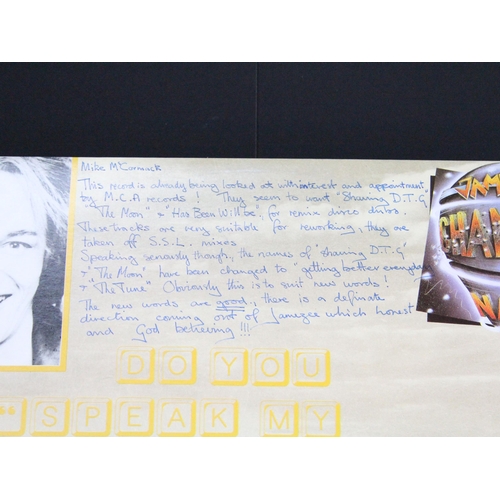 Mike McCormack
This record is already being looked at with interest and appointment
by M.C.A records! They seem to want "Sharing D.T.G"
"The Moon" & "Has Been Will be", for remix disco discs.
These tracks are very suitable for reworking, they are
taken off S.S.L. mixes
Speaking seriously though, the names of 'sharing D.T.G'
& 'The Moon' have been changed to 'getting better everyday'
& "The Tune" Obviously this is to suit new words!
The new words are good, there is a definate
direction coming out of Jamezee which honest
and God believing !!!
DO YOU
"SPEAK MY